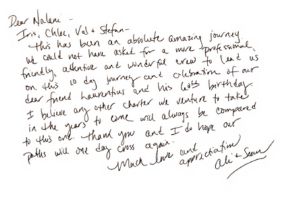 Dear Nalani -
Iris, Chloe, Val + Stefan -
This has been an absolute amazing journey
we could not have asked for a more professional,
friendly, attentive and wonderful crew to lead us
on this 10 day journey and celebration of our
dear friend Laurentius and his 60th birthday.
I believe any other charter we venture to take
in the years to come will always be compared
to this one. Thank you and I do hope our
paths will one day cross again.
Much love and
appreciation
Ali + Sean